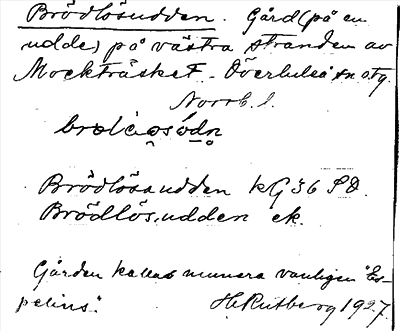 Brödlösudden. Gård (på en
udde) på västra stranden av
Mockträsket. Överluleå sn otg.
Norrb. l.
Brödlösaudden kG 36 SD.
Brödlösudden ek.
Gården kallas numera vanligen "Es-
pelins".  H. Rutberg 1927.